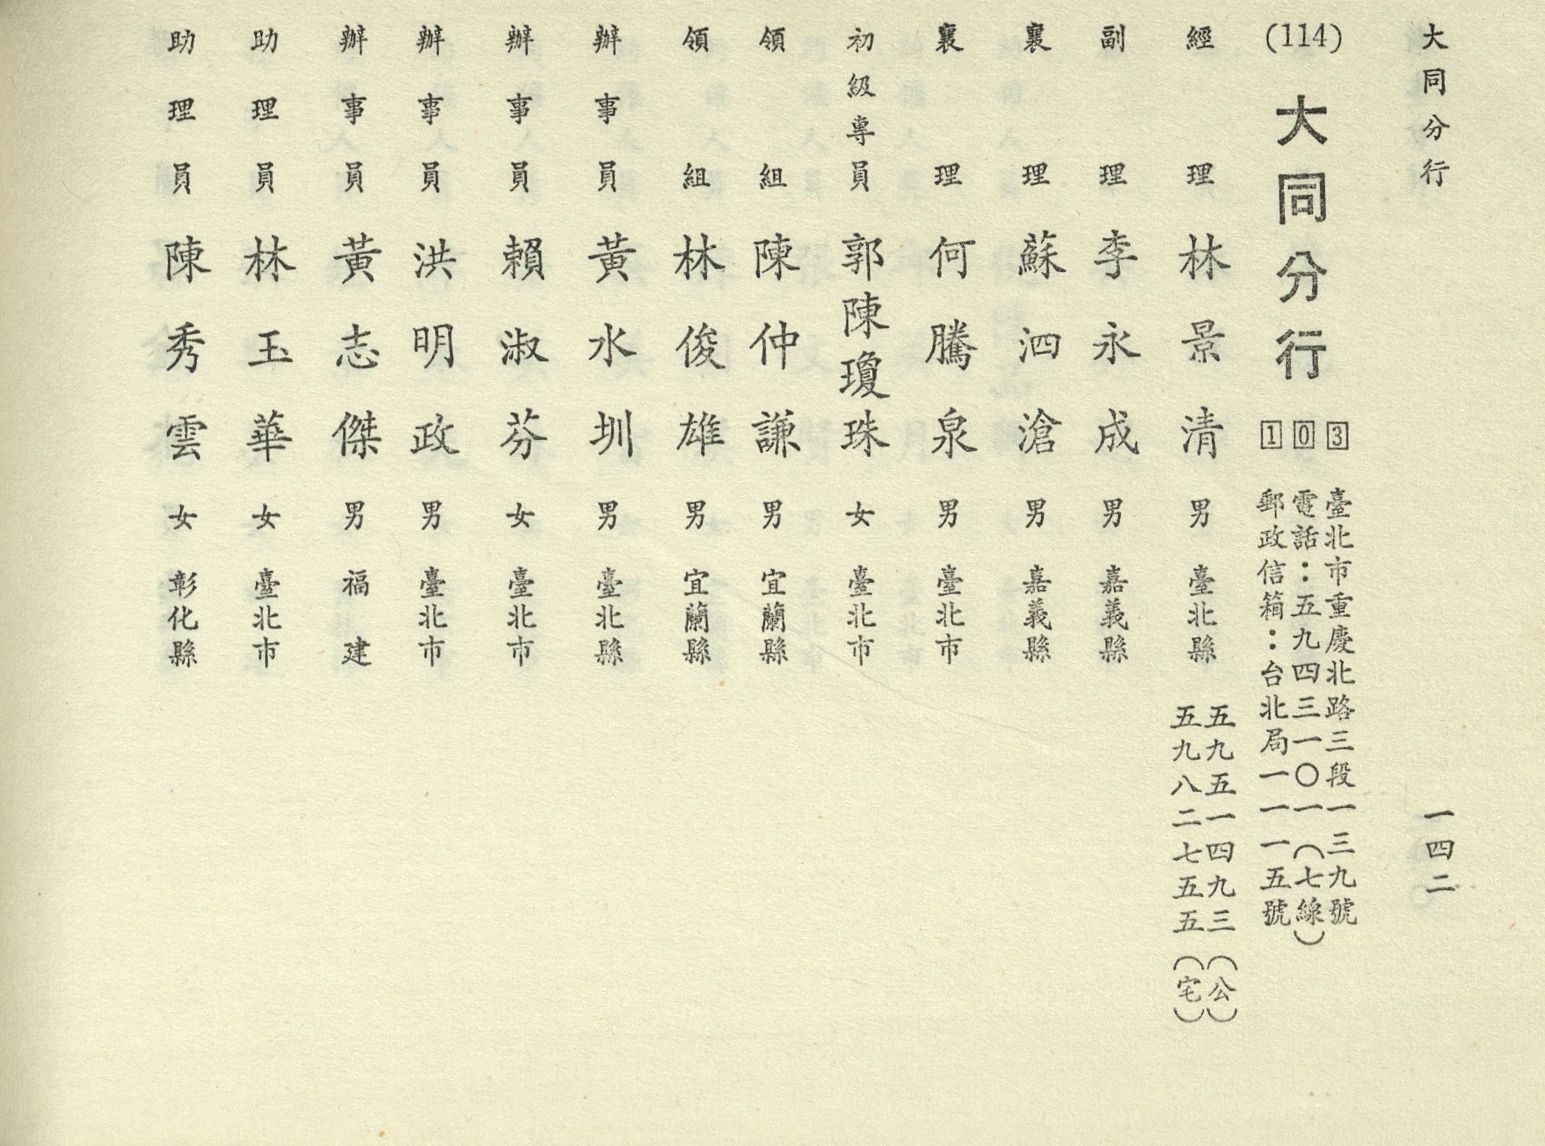 大同分行
一四二
(114)
大同分行
103
臺北市重慶北路三段一三九號
電話：五九四三一〇一（七線）
郵政信箱：台北局一一一五號
經理 林景清 男 臺北縣 五九五一四九三（公）
五九八二七五五（宅）
副理 李永成 男 嘉義縣
襄理 蘇泗滄 男 嘉義縣
襄理 何騰泉 男 臺北市
初級專員 郭陳瓊珠 女 臺北市
領組 陳仲謙 男 宜蘭縣
領組 林俊雄 男 宜蘭縣
辦事員 黃水圳 男 臺北縣
辦事員 賴淑芬 女 臺北市
辦事員 洪明政 男 臺北市
辦事員 黃志傑 男 福建
助理員 林玉華 女 臺北市
助理員 陳秀雲 女 彰化縣